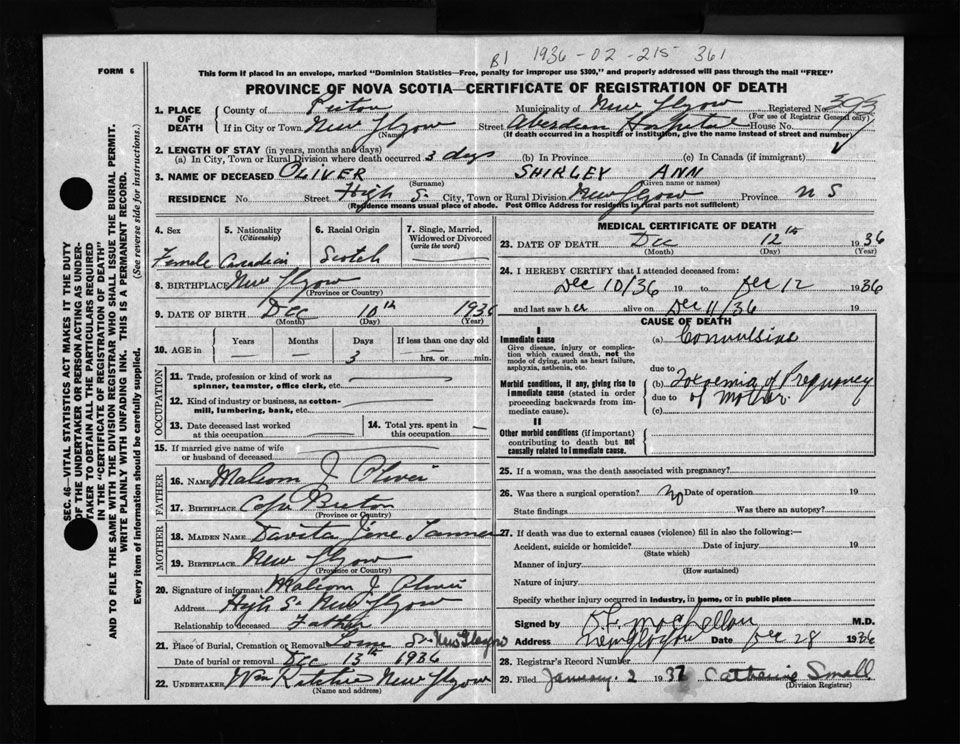 B1 1936-02-215 361
FORM 6
This form if placed in an envelope, marked "Dominion Statistics—Free, penalty for improper use $300," and properly addressed will pass through the mail "FREE"
PROVINCE OF NOVA SCOTIA—CERTIFICATE OF REGISTRATION OF DEATH
SEC. 46—VITAL STATISTICS ACT MAKES IT THE DUTY
OF THE UNDERTAKER OR PERSON ACTING AS UNDER-
TAKER TO OBTAIN ALL THE PARTICULARS REQUIRED
IN THE "CERTIFICATE OF REGISTRATION OF DEATH"
AND TO FILE THE SAME WITH THE DIVISION REGISTRAR WHO SHALL ISSUE THE BURIAL PERMIT.
WRITE PLAINLY WITH UNFADING INK. THIS IS A PERMANENT RECORD.
Every item of information should be carefully supplied. (See reverse side for instructions.)
1. PLACE OF DEATH County of Pictou Municipality of New Glgow Registered No. 393
(For use of Registrar General only)
If in City or Town New Glgow Street Aberdeen Hospital House No.
(Name) (If death occurred in a hospital or institution, give the name instead of street and number)
2. LENGTH OF STAY (in years, months and days)
(a) In City, Town or Rural Division where death occurred 3 days (b) In Province (c) In Canada (if immigrant)
3. NAME OF DECEASED OLIVER SHIRLEY ANN
(Surname) (Given name or names)
RESIDENCE No. Street High S. City, Town or Rural Division New Glgow Province N S
(Residence means usual place of abode. Post Office Address for residents in rural parts not sufficient)
4. Sex 5. Nationality (Citizenship) 6. Racial Origin 7. Single, Married, Widowed or Divorced (write the word)
Female Canadian Scotch
8. BIRTHPLACE New Glgow
(Province or Country)
9. DATE OF BIRTH Dec 10th 1936
(Month) (Day) (Year)
10. AGE in Years Months Days If less than one day old
3 hrs. or min.
OCCUPATION
11. Trade, profession or kind of work as
spinner, teamster, office clerk, etc.
12. Kind of industry or business, as cotton-
mill, lumbering, bank, etc.
13. Date deceased last worked
at this occupation
14. Total yrs. spent in
this occupation
15. If married give name of wife
or husband of deceased
FATHER
16. NAME Malcom J Oliver
17. BIRTHPLACE Cape Breton
(Province or Country)
MOTHER
18. MAIDEN NAME Davita Jane
19. BIRTHPLACE New Glgow
(Province or Country)
20. Signature of informant Malcom J. Oliver
Address High S. New Glgow
Relationship to deceased Father
21. Place of Burial, Cremation or Removal St New Glasgow
Date of burial or removal Dec 13th 1936
22. UNDERTAKER Wm Ritchie New Glgow
(Name and address)
MEDICAL CERTIFICATE OF DEATH
23. DATE OF DEATH Dec 12th 1936
(Month) (Day) (Year)
24. I HEREBY CERTIFY that I attended deceased from:
Dec 10/36 19 to Dec 12 1936
and last saw her alive on Dec 11/36 19
CAUSE OF DEATH
I
Immediate cause
Give disease, injury or complica-
tion which caused death, not the
mode of dying, such as heart failure,
asphyxia, asthenia, etc.
(a) Convulsions
due to
Morbid conditions, if any, giving rise to
immediate cause (stated in order
proceeding backwards from im-
mediate cause).
(b) Toxemia of Pregnancy
due to of mother.
(c)
II
Other morbid conditions (if important)
contributing to death but not
causally related to immediate cause.
25. If a woman, was the death associated with pregnancy?
26. Was there a surgical operation? no Date of operation 19
State findings Was there an autopsy?
27. If death was due to external causes (violence) fill in also the following:
Accident, suicide or homicide? Date of injury 19
(State which)
Manner of injury
(How sustained)
Nature of injury
Specify whether injury occurred in industry, in home, or in public place
Signed by M.D.
Address New Glgow Date Dec 28 1936
28. Registrar's Record Number
29. Filed January 2 1937 Catherine Small
(Division Registrar)